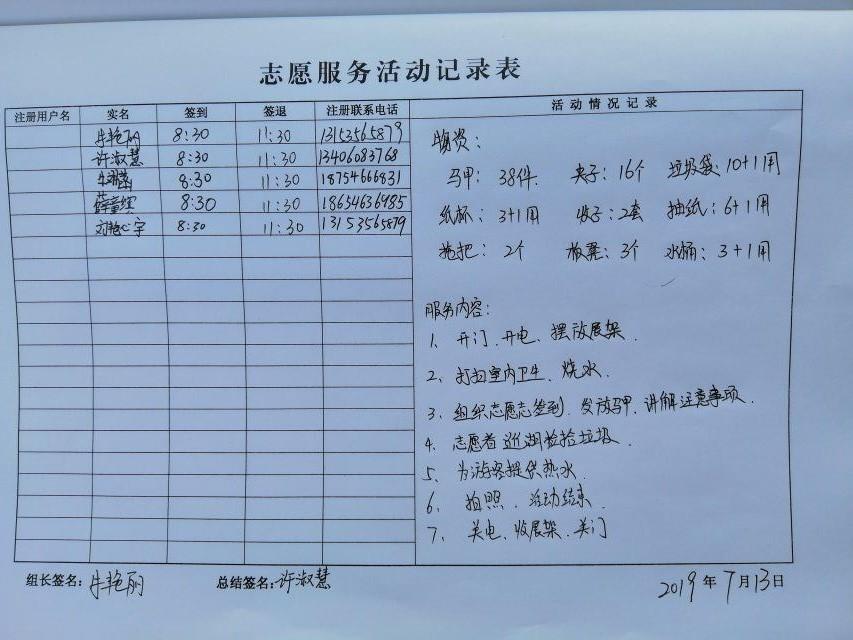 志愿服务活动记录表
注册用户名 实名 签到 签退 注册联系电话 活动情况记录
牛艳丽 8:30 11:30 13153565879
许淑慧 8:30 11:30 13406083768
8:30 11:30 18754666831
8:30 11:30 18654636985
刘艳心宇 8:30 11:30 13153565879
物资：
马甲：38件. 夹子：16个 垃圾袋：10+1用
纸杯：3+1用 2套 抽纸：6+1用
拖把：2个 板凳：3个 水桶：3+1用
服务内容：
1、开门、开电、摆放展架.
2、打扫室内卫生、烧水.
3、组织志愿志签到、发放马甲、讲解注意事项.
4、志愿者巡湖捡拾垃圾.
5、为游客提供热水.
6、拍照、活动结束.
7、关电、收展架、关门
组长签名：牛艳丽 总结签名：许淑慧 2019年7月13日